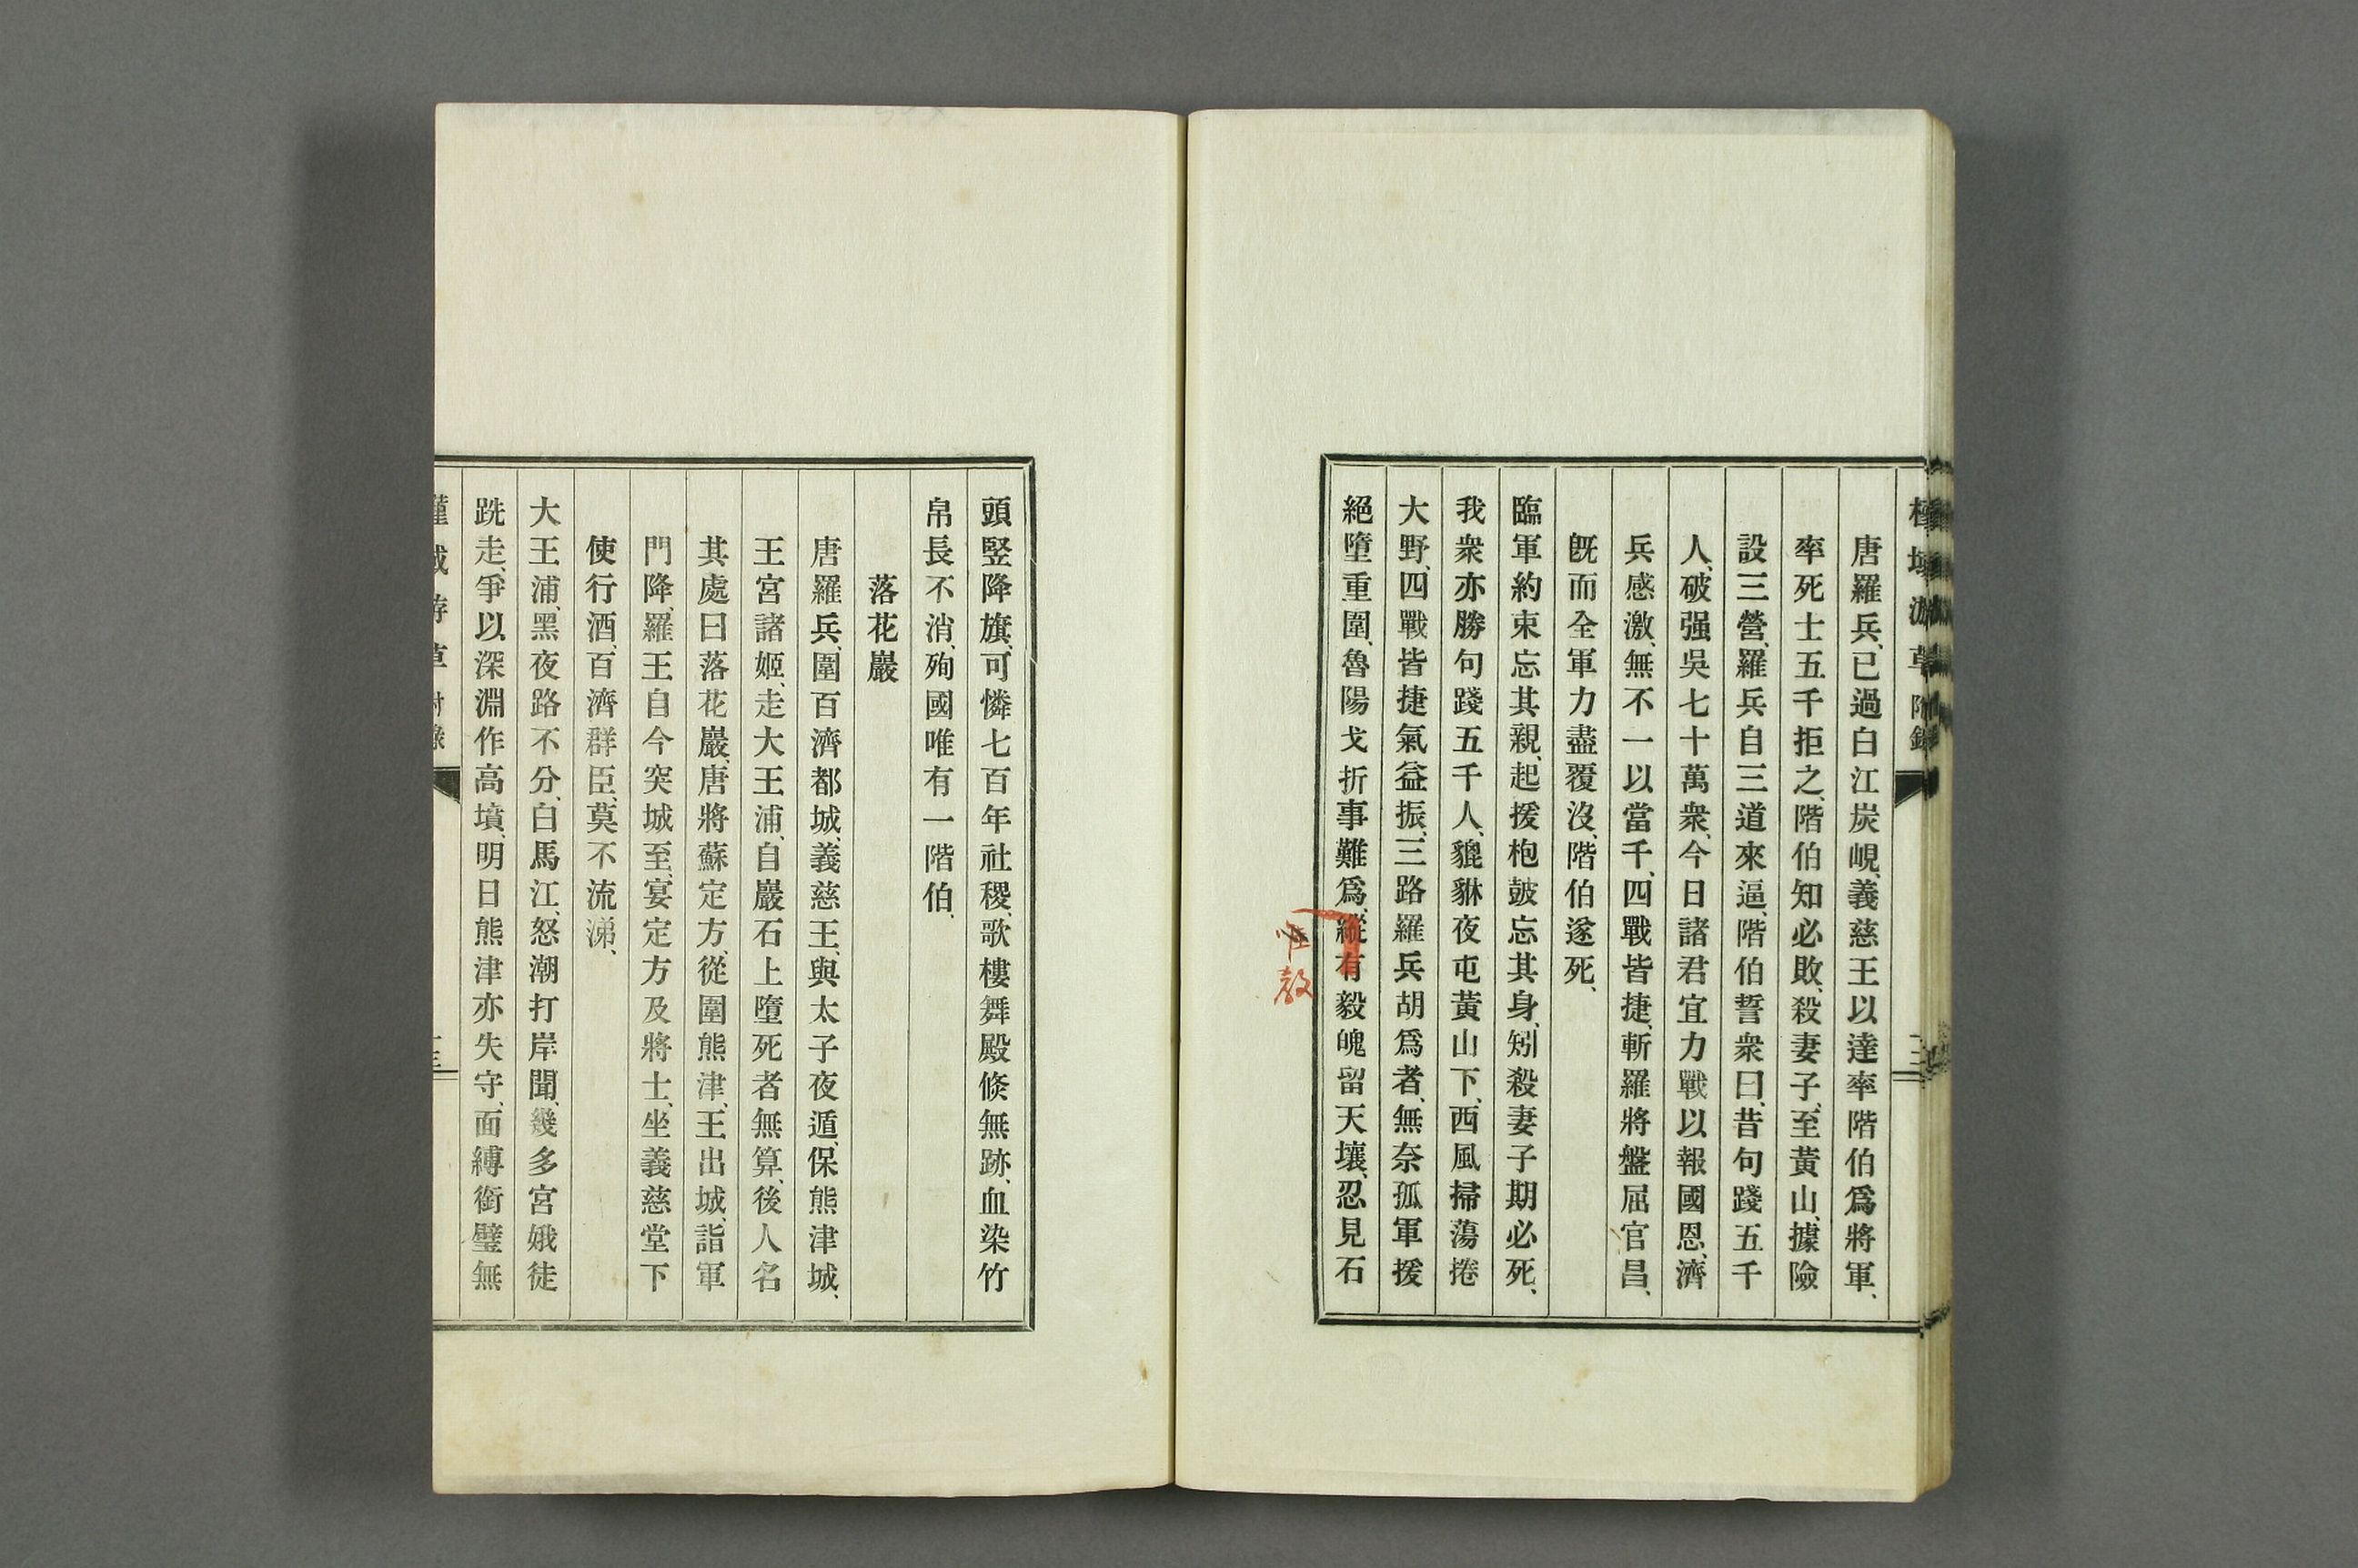 唐羅兵、已過白江炭峴、義慈王以達率階伯爲將軍、
率死士五千拒之、階伯知必敗、殺妻子、至黃山、據險
設三營、羅兵自三道來逼、階伯誓衆曰、昔句踐五千
人、破强吳七十萬衆、今日諸君宜力戰以報國恩、濟
兵感激、無不一以當千、四戰皆捷、斬羅將盤屈官昌、
旣而全軍力盡覆沒、階伯遂死、
臨軍約束忘其親、起援枹鼓忘其身、矧殺妻子期必死、
我衆亦勝句踐五千人、貔貅夜屯黃山下、西風掃蕩捲
大野、四戰皆捷氣益振、三路羅兵胡爲者、無奈孤軍援
絕墮重圍、魯陽戈折事難爲、縱有毅魄留天壤、忍見石
頭竪降旗、可憐七百年社稷、歌樓舞殿倏無跡、血染竹
帛長不消、殉國唯有一階伯、
落花巖
唐羅兵、圍百濟都城、義慈王、與太子夜遁、保熊津城、
王宮諸姬、走大王浦、自巖石上墮死者無算、後人名
其處曰落花巖、唐將蘇定方、從圍熊津、王出城、詣軍
門降、羅王自今突城至、宴定方及將士、坐義慈堂下
使行酒、百濟群臣、莫不流涕、
大王浦、黑夜路不分、白馬江、怒潮打岸聞、幾多宮娥徒
跣走、爭以深淵作高墳、明日熊津亦失守、面縛銜璧無